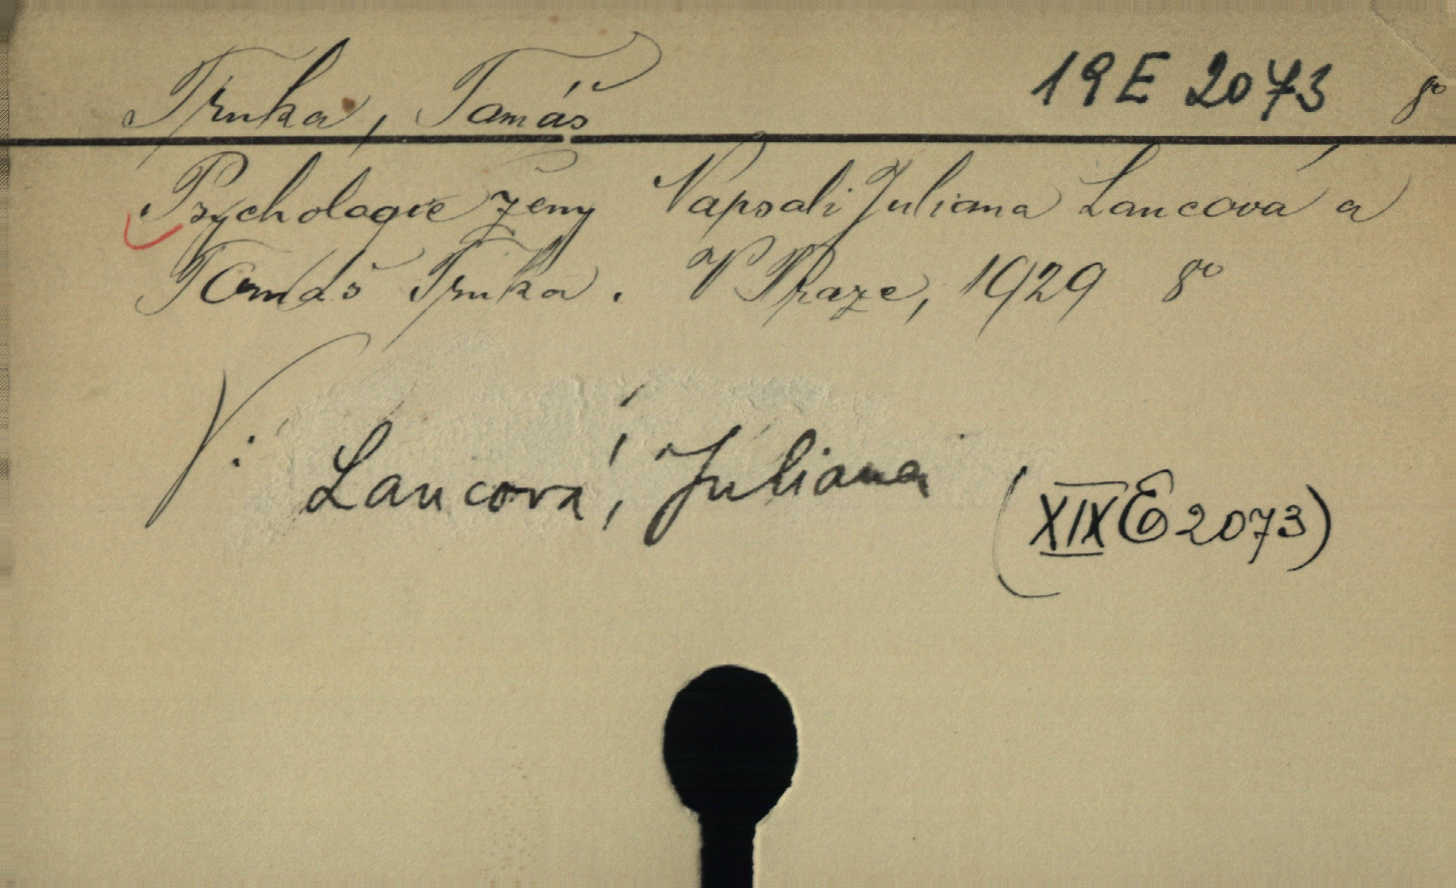 Trnka, Tomáš 19 E 2073 8°
Psychologie ženy Napsali Juliana Lancová a
Tomáš Trnka. V Praze, 1929 8°
V: Lancová, Juliana
(XIX E 2073)